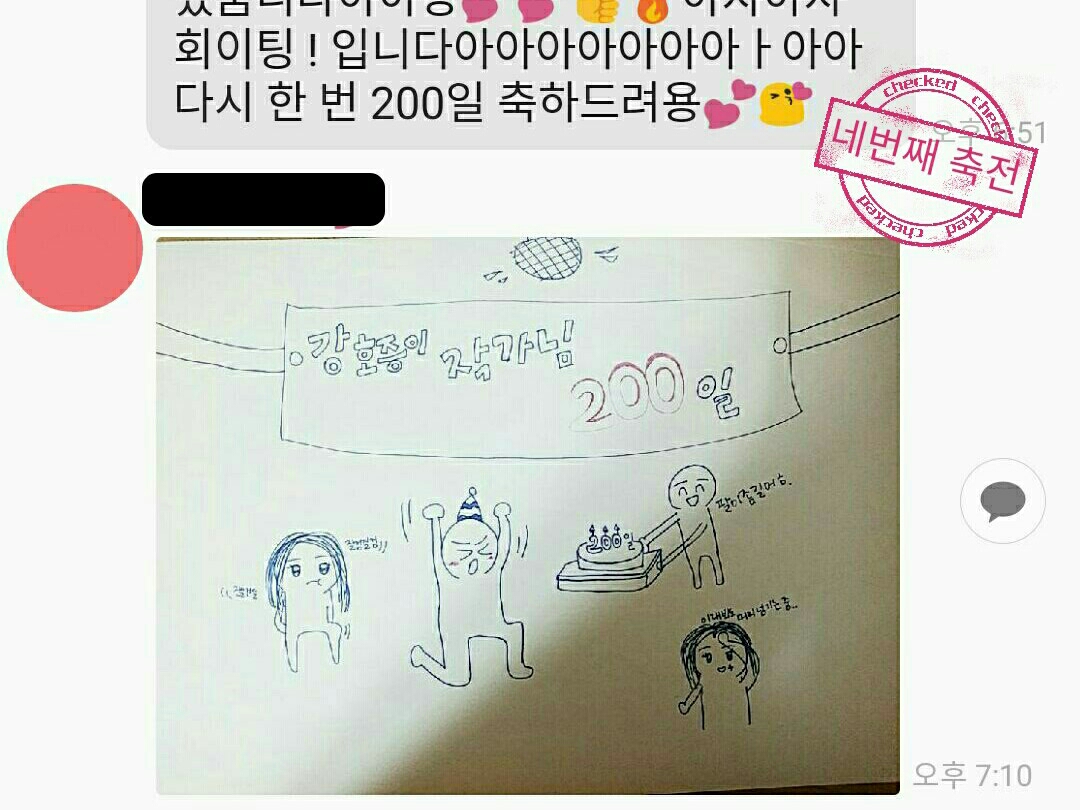 회이팅 ! 입니다아아아아아아아ㅏ아아
다시 한 번 200일 축하드려용💕😘
오후 :51
checked
checked
네번째 축전
checked
checked
강호종이 작가님
200일
200일
팔이좀길어요.
오후 7:10